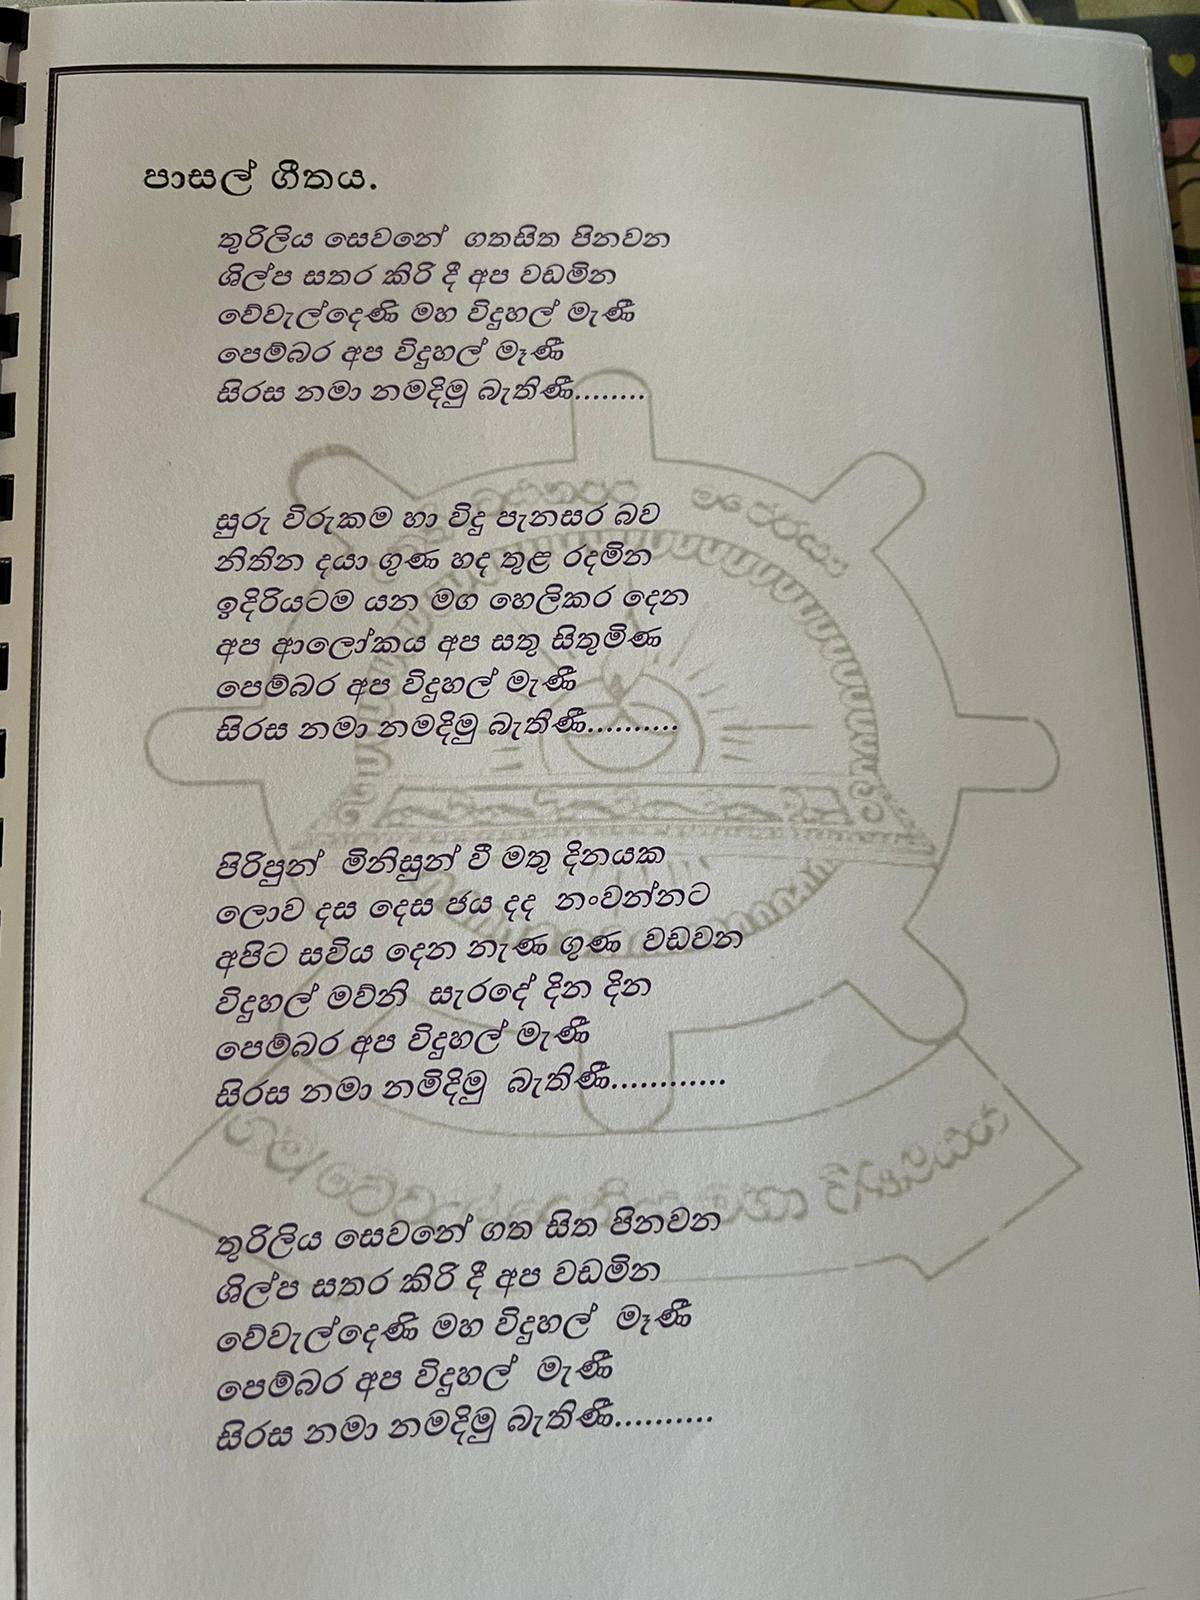 පාසල් ගීතය.
තුරිලිය සෙවනේ ගතසිත පිනවන
ශිල්ප සතර කිරි දී අප වඩමින
වේවැල්දෙණි මහ විදුහල් මැණී
පෙම්බර අප විදුහල් මෑණී
සිරස නමා නමදිමු බැතිණී........
සුරු විරුකම හා විදු පැනසර බව
නිතින දයා ගුණ හද තුළ රදමින
ඉදිරියටම යන මග හෙලිකර දෙන
අප ආලෝකය අප සතු සිතුමිණ
පෙම්බර අප විදුහල් මැණී
සිරස නමා නමදිමු බැතිණී..........
පිරිපුන් මිනිසුන් වී මතු දිනයක
ලොව දස දෙස ජය දද නංවන්නට
අපිට සවිය දෙන නැණ ගුණ වඩවන
විදුහල් මව්නි සැරදේ දින දින
පෙම්බර අප විදුහල් මැණී
සිරස නමා නමිදිමු බැතිණී............
තුරිලිය සෙවනේ ගත සිත පිනවන
ශිල්ප සතර කිරි දී අප වඩමින
වේවැල්දෙණි මහ විදුහල් මෑණී
පෙම්බර අප විදුහල් මැණී
සිරස නමා නමදිමු බැතිණී..........